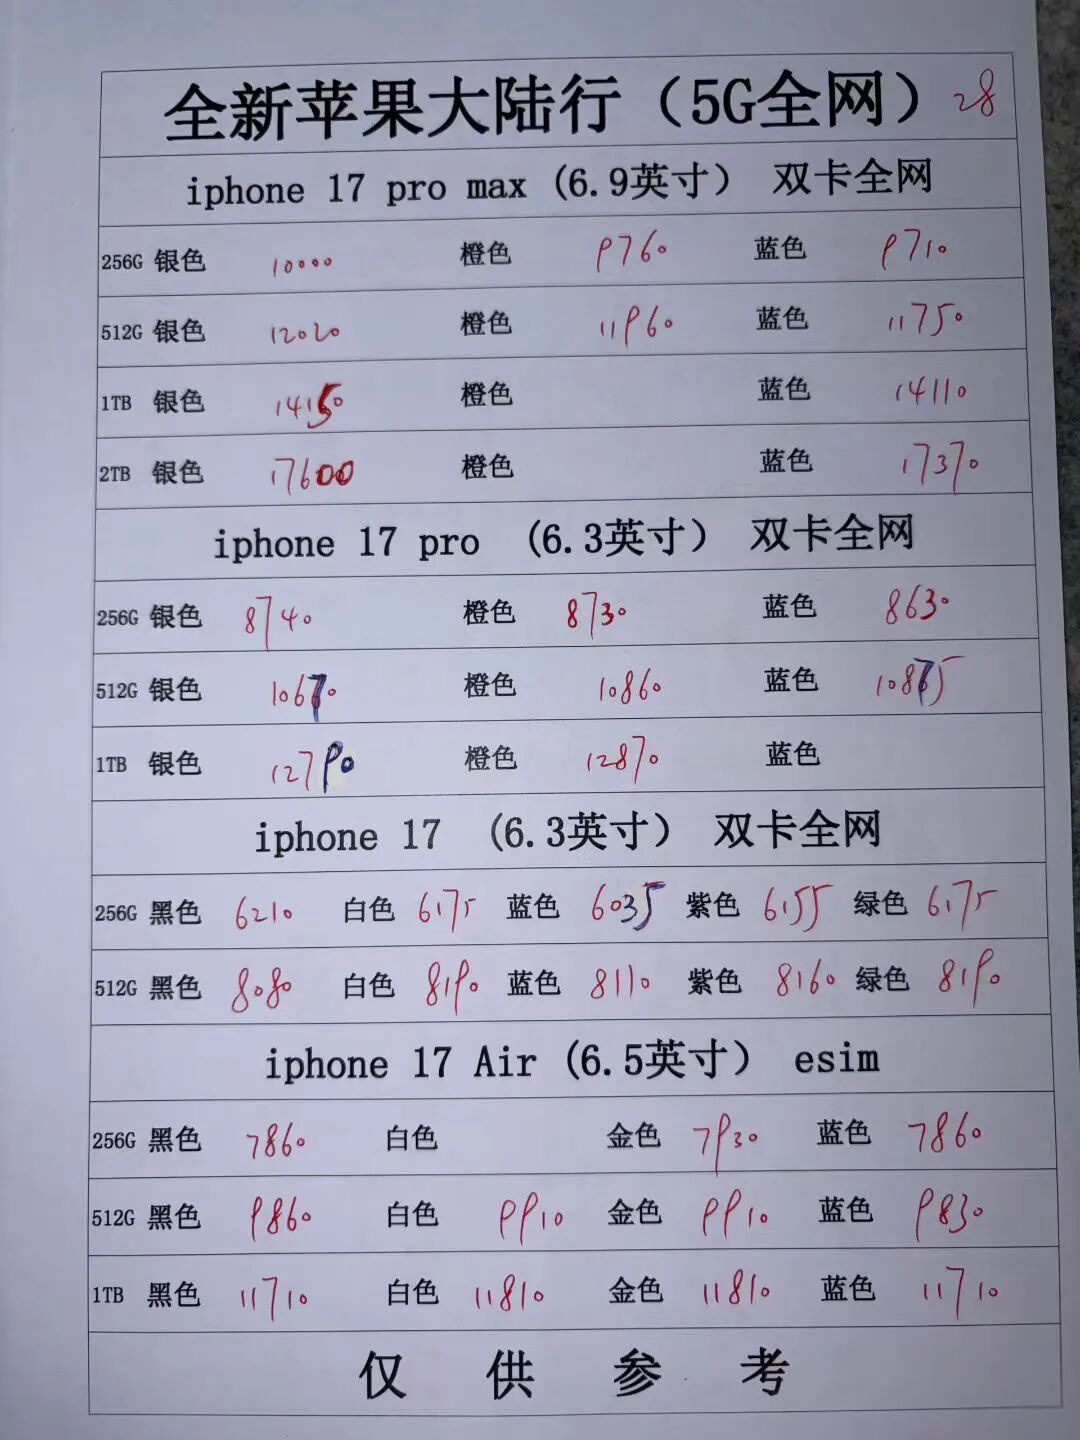 全新苹果大陆行（5G全网） 28
iphone 17 pro max（6.9英寸） 双卡全网
256G 银色 10000 橙色 9760 蓝色 9710
512G 银色 12020 橙色 11960 蓝色 11750
1TB 银色 14150 橙色 蓝色 14110
2TB 银色 17600 橙色 蓝色 17370
iphone 17 pro （6.3英寸） 双卡全网
256G 银色 8740 橙色 8730 蓝色 8630
512G 银色 10670 橙色 10860 蓝色 10875
1TB 银色 12790 橙色 12870 蓝色
iphone 17 （6.3英寸） 双卡全网
256G 黑色 6210 白色 6175 蓝色 6035 紫色 6155 绿色 6175
512G 黑色 8080 白色 8190 蓝色 8110 紫色 8160 绿色 8190
iphone 17 Air（6.5英寸） esim
256G 黑色 7860 白色 金色 7930 蓝色 7860
512G 黑色 9860 白色 9910 金色 9910 蓝色 9830
1TB 黑色 11710 白色 11810 金色 11810 蓝色 11710
仅供参考